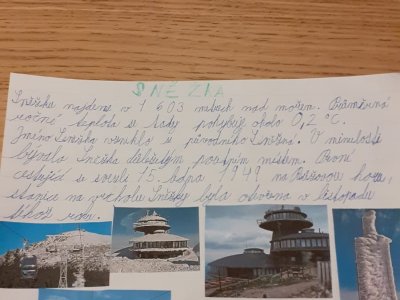 SNĚŽKA
Sněžku najdeme v 1 603 metrech nad mořem. Průměrná
roční teplota se tady pohybuje okolo 0,2 °C.
Jméno Sněžka vzniklo z původního Sněžná. V minulosti
bývala Sněžka důležitým poutním místem. První
cestující se svezli 15. ledna 1949 na Růžovou horu,
stanice na vrcholu Sněžky byla otevřena v listopadu
téhož roku.